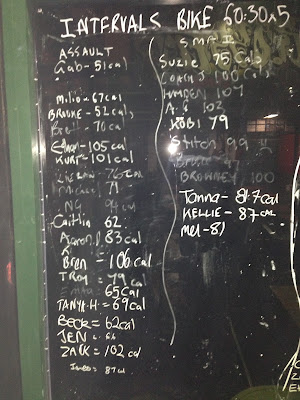 INTERVALS BIKE 60:30x5
ASSAULT
Gab - 51cal
Milio - 67cal
BROOKE - 52cal
Bre - 70cal
Ethan - 105cal
KURT - 101cal
76cal
Michael 71
NG 94cal
Caitlin 62
Aaron 83cal
Bren = 106cal
TROY = 79cal
Emma 65Cal
TANYA.H. = 69cal
BECK = 62cal
JEN = 66
ZACK = 102 cal
Jambo = 87cal
Suzie 75Cal
COACH J 100 Cal
HAYDEN 107
A.S 102
KOBI 79
Stitch 99
BROWNEY 100
Tanna - 81.7cal
KELLIE - 87cal
Mel - 81